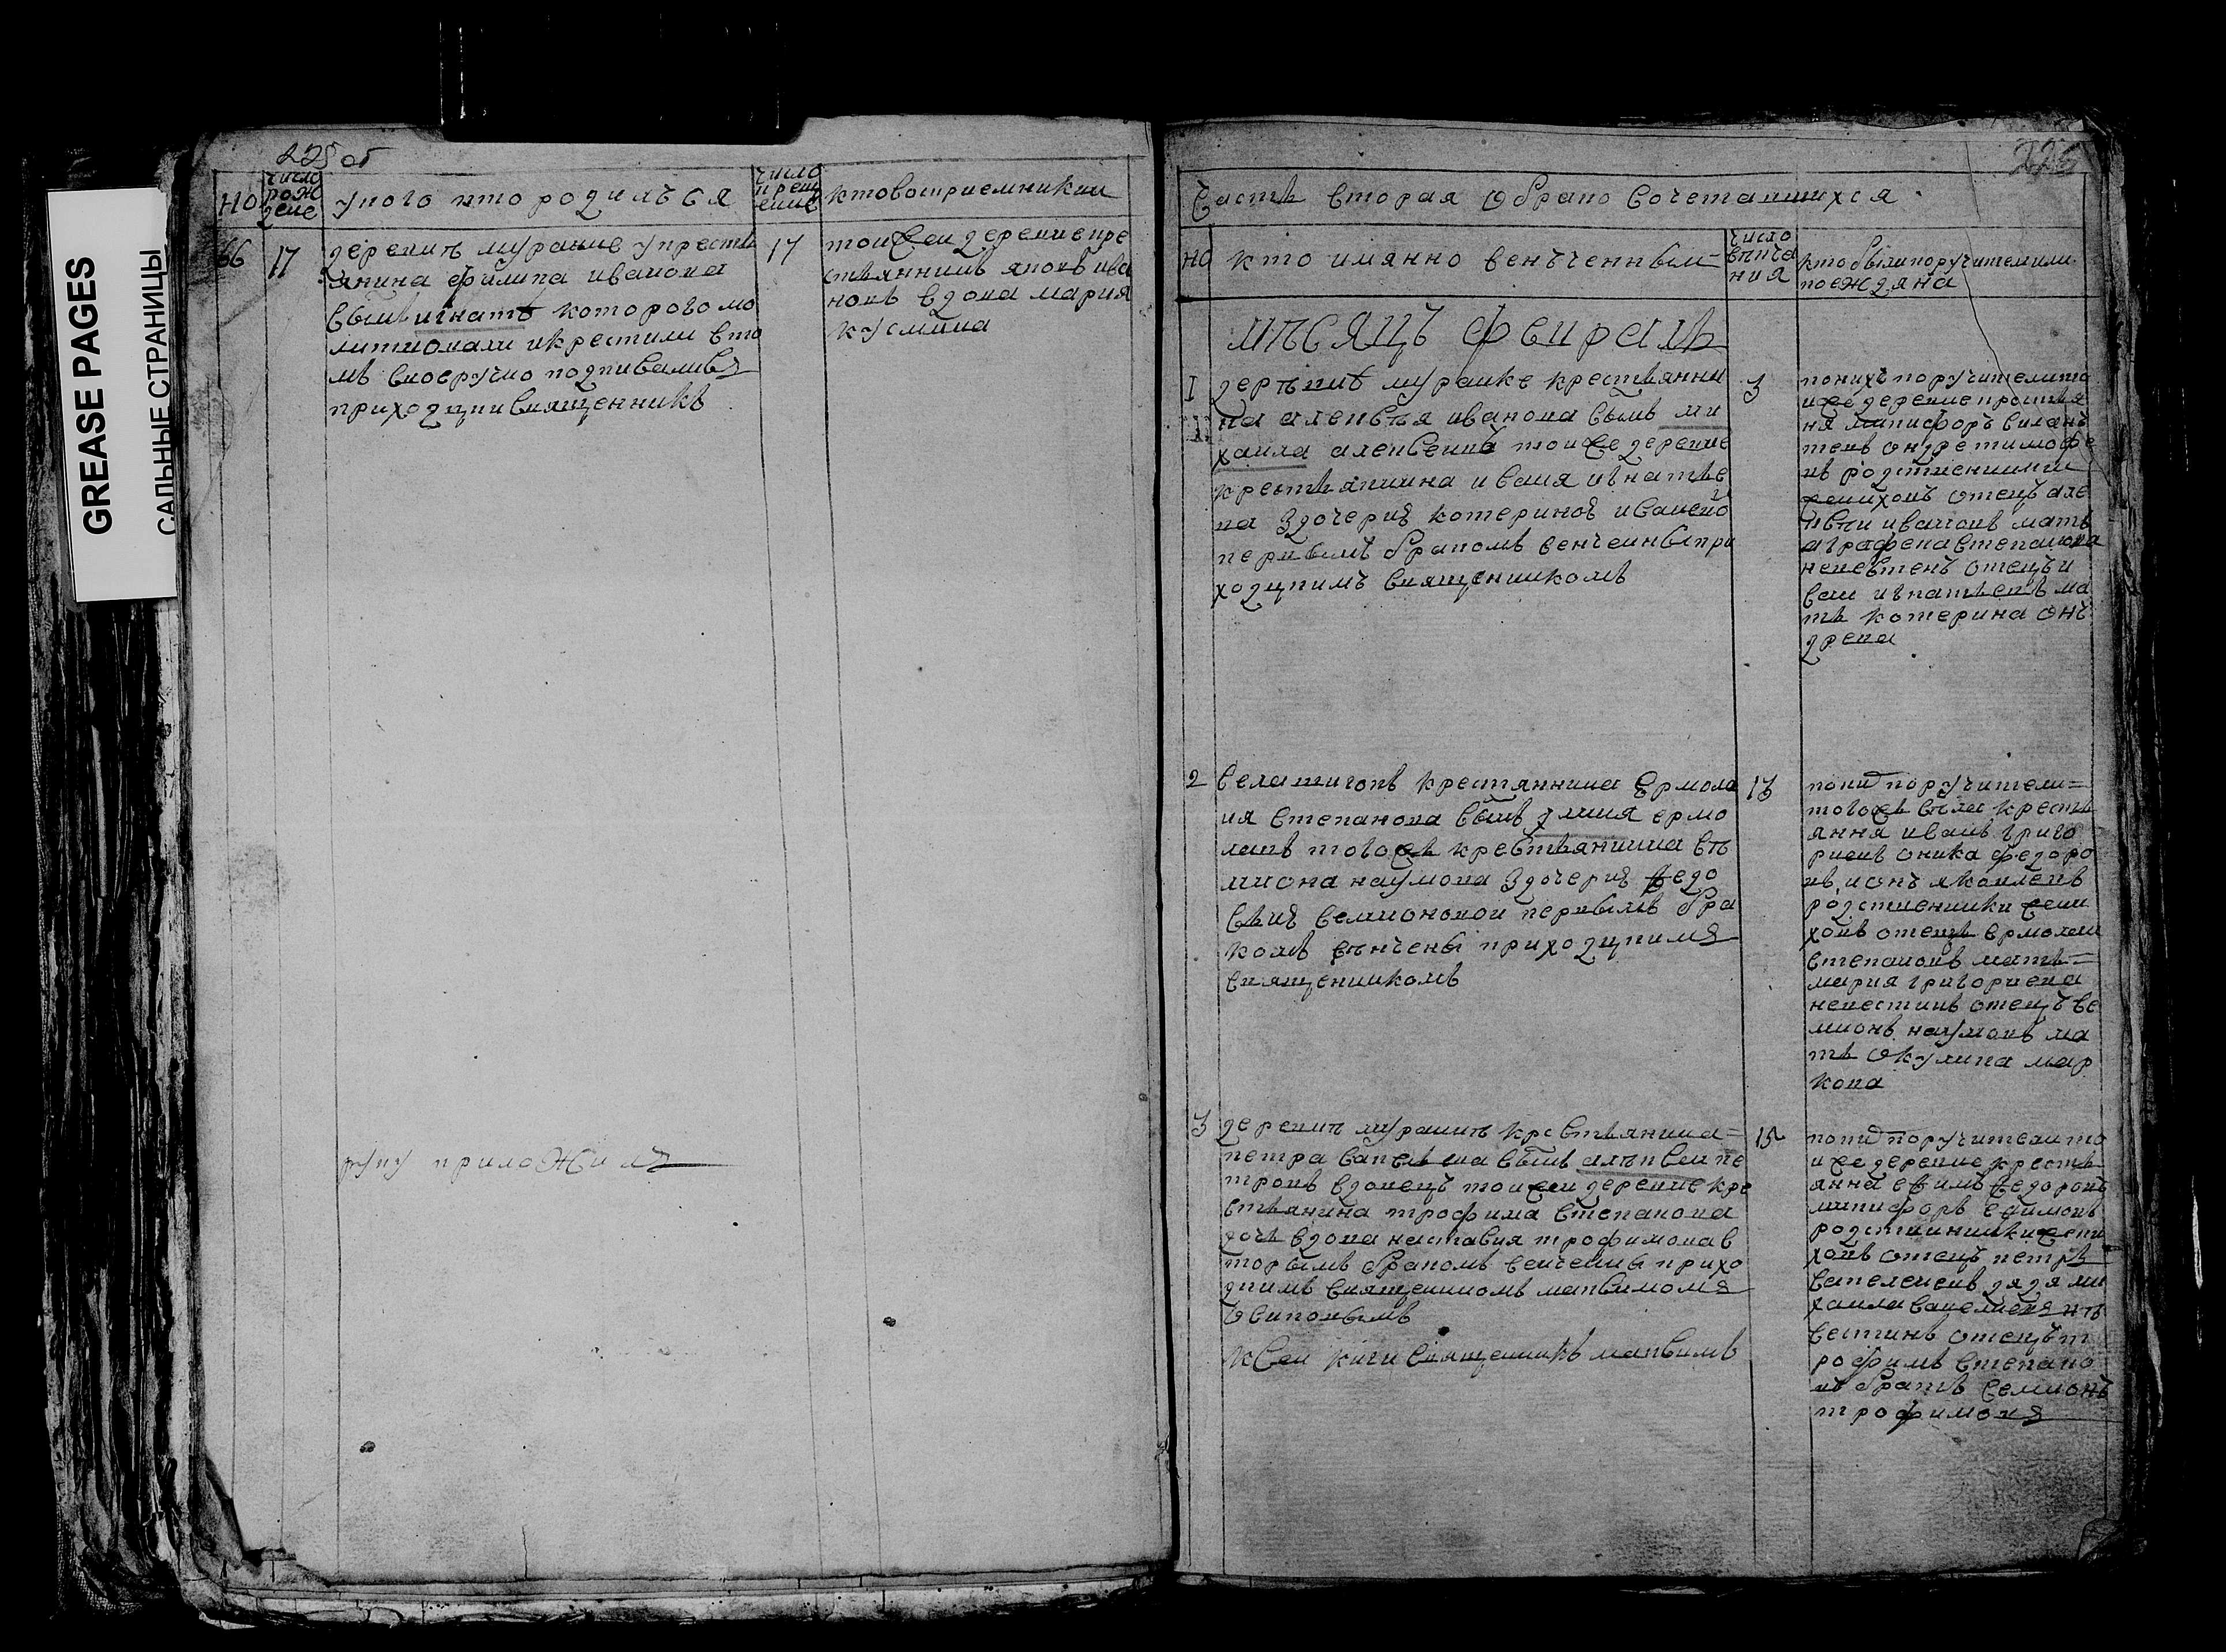 GREASE PAGES
САЛЬНЫЕ СТРАНИЦЫ
225 об
но
число рож дение
у кого кто родилъся
число крещ ение
кто восприемники
66
17
деревнѣ муравке у кресть
янина филипа иванова
сынъ игнатъ которого мо
литвовали и крестили в то
мъ своеручно подписались
приходцки священникъ
17
тои жеи деревне кре
стьяннинъ яковъ ива
новъ вдова мария
кусмина
руку приложилъ
226
Часть вторая о брако сочетавшихся
но
кто имянно венъченныи
число венча ния
кто были поручители или
поежзяна
мѣсяцъ февраль
1
деревнѣ муравке крестьянни
на алексѣя иванова сынъ ми
хаила алексеивъ тои же деревне
крестьяниина ивана игнатье
ва з дочерию котериною ивановой
первымъ бракомъ венчены при
ходцкимъ священникомъ
3
по нихъ поручители то
и же деревне крестья
ня никифоръ силанъ
тевъ ондре тимофе
въ родственники
женихонъ отецъ але
ксѣи ивановъ мать
аграфена степанова
невѣстенъ отецъ и
ван игнатьевъ ма
ть котерина он
древа
2
села шигонъ крестяннина ермола
ия степанова сынъ улиия ермо
лаивъ того жъ крестьянина сѣ
миона наумова з дочерию федо
сьиею семионовои первымъ бра
комъ вѣнчены приходцкимъ
священникомъ
13
по ни поручители
того жъ села кресть
яння иванъ григо
риевъ оника федоро
въ ионъ яковлевъ
родственники жени
ховъ отецъ ермолаи
степановъ мать
мария григориева
невестинъ отецъ се
мионъ наумовъ ма
ть окулина мар
кова
3
деревнѣ муравкѣ крестьянина
петра савельева сынъ алѣксеи пе
тровъ вдовецъ тои жеи деревне кре
стьянина трофима степанова
дочь вдова настасия трофимова в
торымъ бракомъ венчены прихо
дцкимъ священникомъ максимомъ
осиповымъ
15
по ни поручители то
и же деревне кресть
янна ефимъ федоровъ
никифоръ ефимовъ
родствинники жени
ховъ отецъ петръ
савелеиевъ дядя ми
хаила савелиевъ не
вестинъ отецъ т
рофимъ степано
въ братъ семионъ
трофимовъ
к сеи книги священникъ максимъ